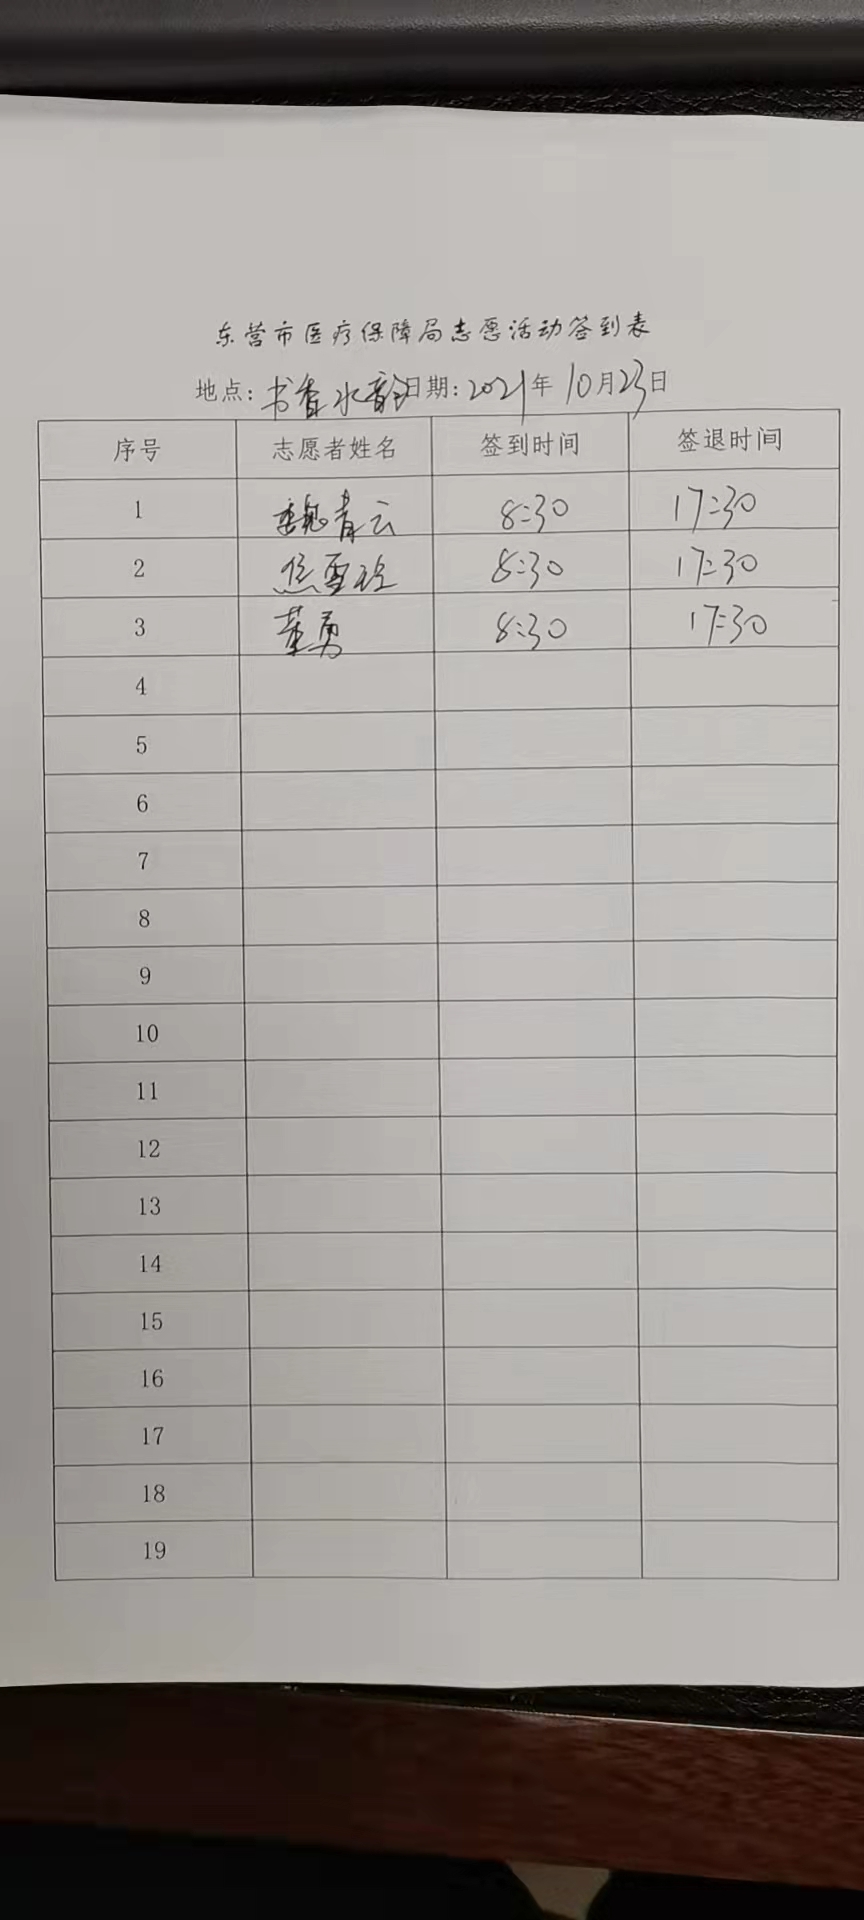 东营市医疗保障局志愿活动签到表
地点：书香水韵日期：2021年10月23日
序号 志愿者姓名 签到时间 签退时间
1 魏青云 8:30 17:30
2 焦雪 8:30 17:30
3 董勇 8:30 17:30
4
5
6
7
8
9
10
11
12
13
14
15
16
17
18
19